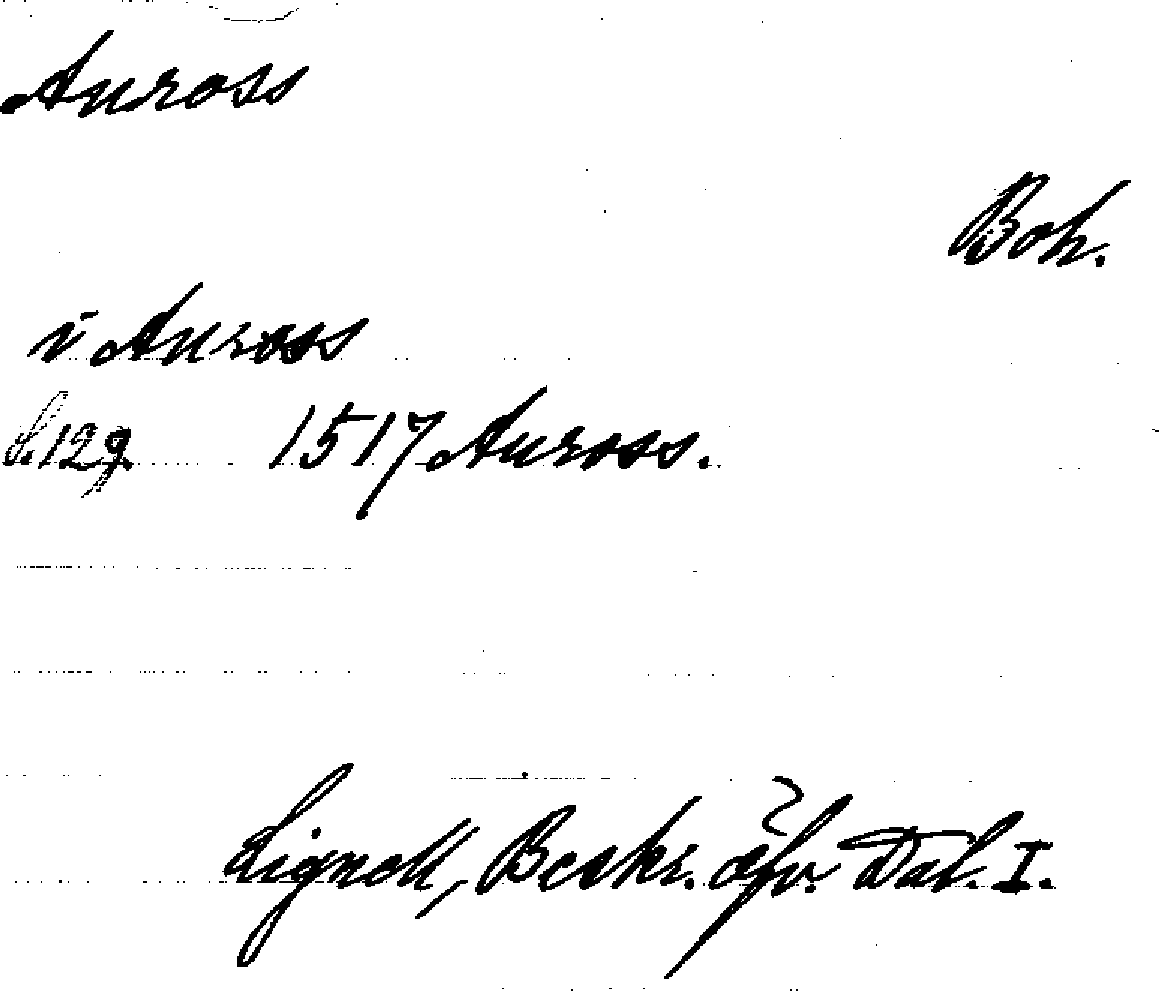 Anross
Boh.
i Anross
S. 129. 1517 Anross.
Lignell, Beskr. öfv. Dal. I.